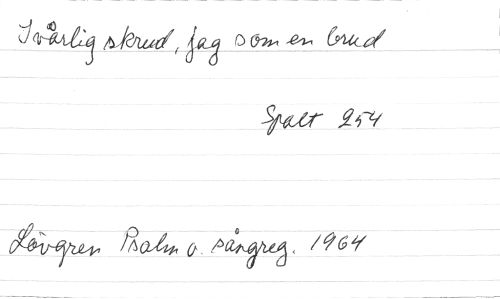 I vårlig skrud, jag som en brud
Spalt 254
Lövgren Psalm o. sångreg. 1964